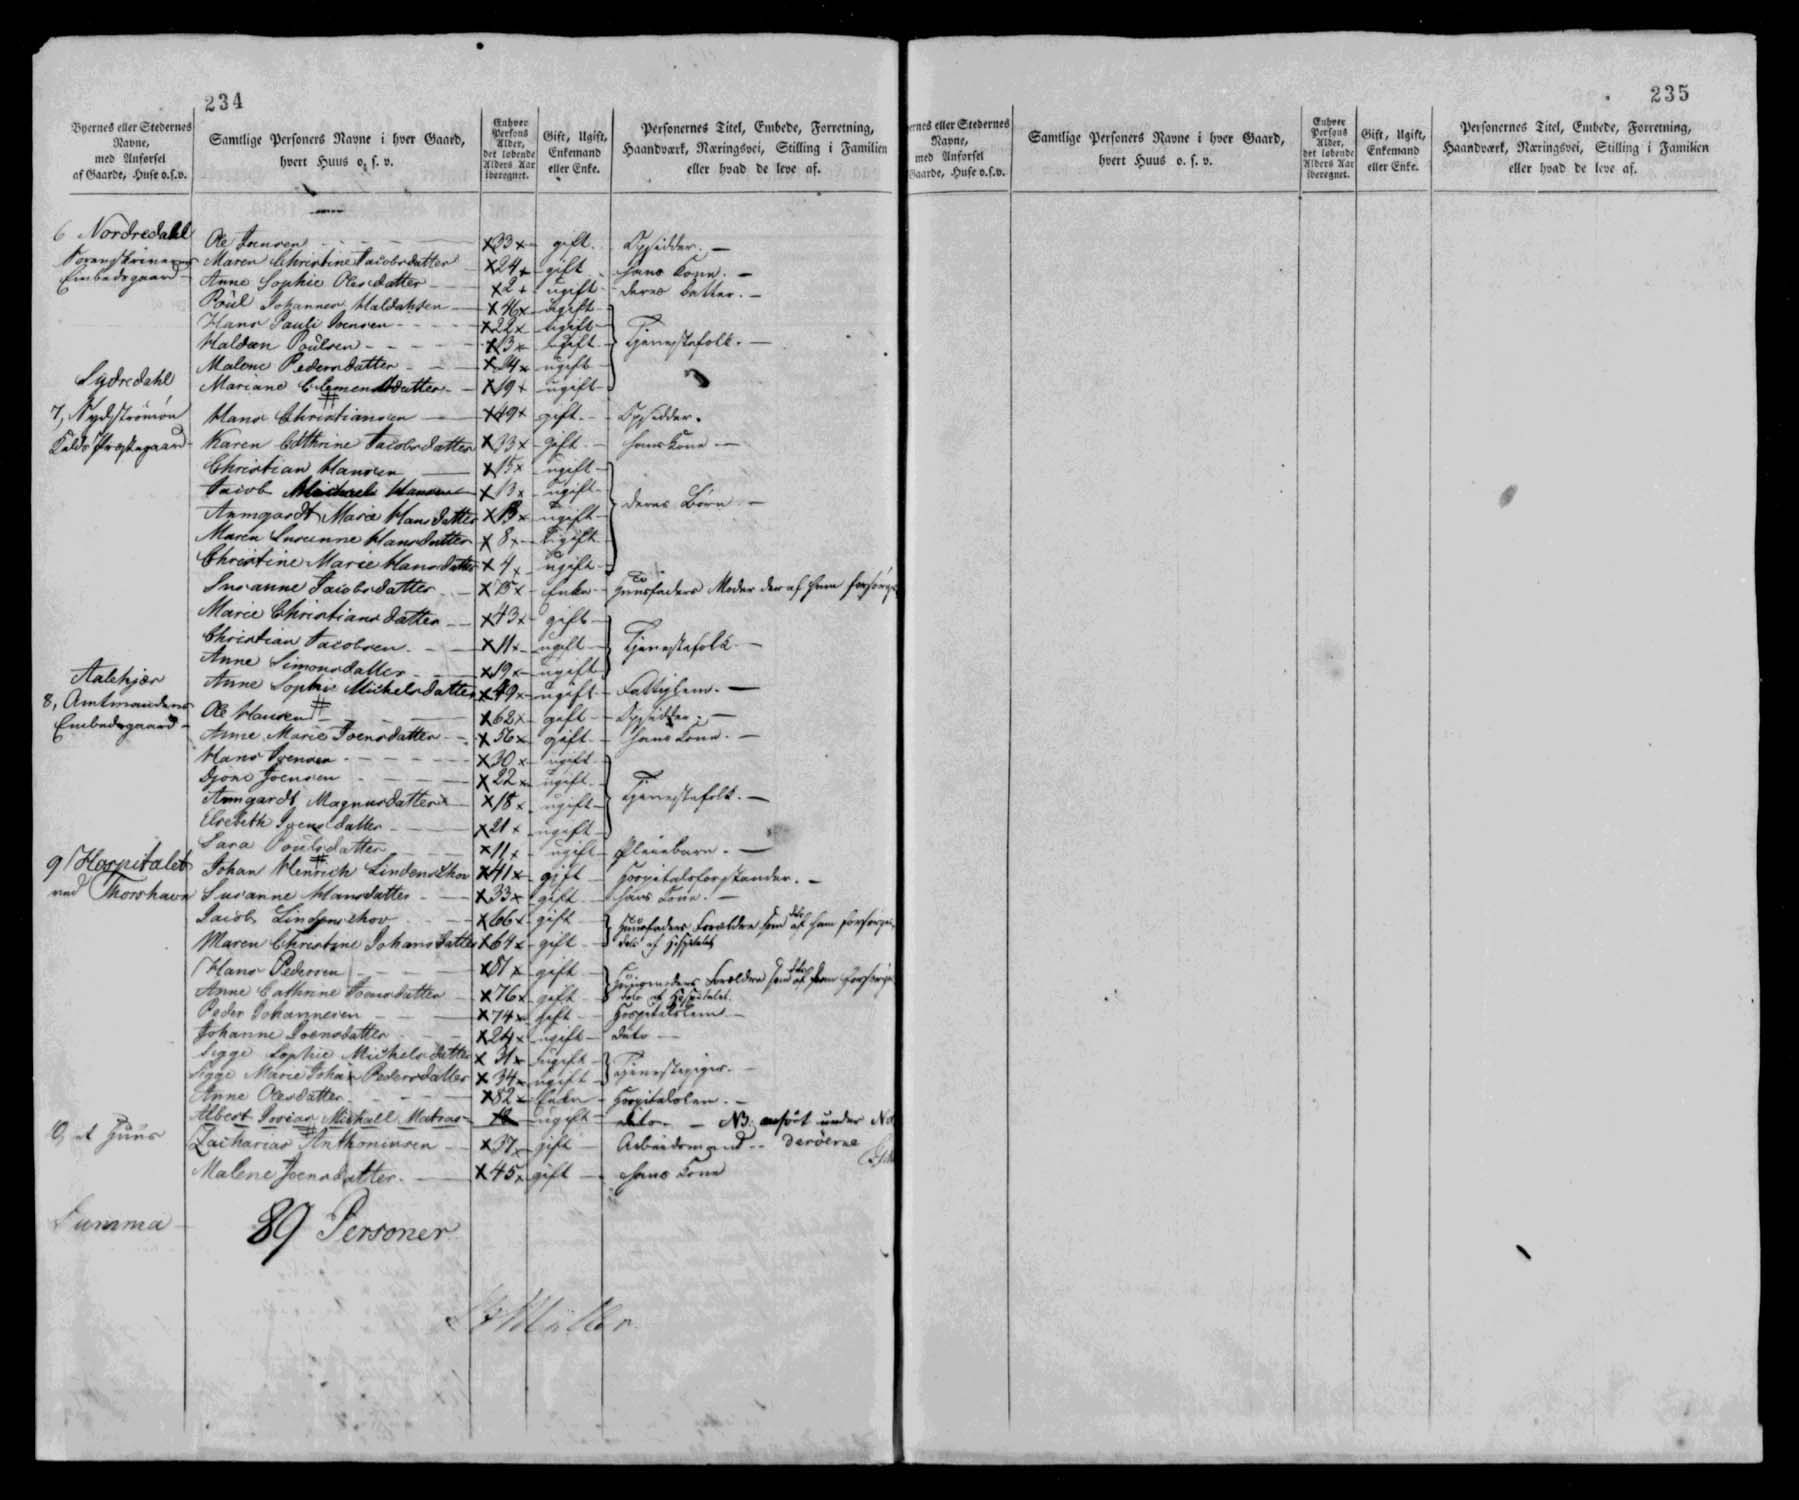 234
Byernes eller Stedernes Navne, med Anførsel af Gaarde, Huse o.s.v.
Samtlige Personers Navne i hver Gaard, hvert Huus o. s. v.
Enhver Persons Alder, det løbende Alders Aar iberegnet.
Gift, Ugift, Enkemand eller Enke.
Personernes Titel, Embede, Forretning, Haandværk, Næringsvei, Stilling i Familien eller hvad de leve af.
6 Nordredahl Ole Joensen 33 gift Opsidder
Sorenskriverens Maren Christine Jacobsdatter 24 gift hans Kone
Embedsgaard Anne Sophie Olesdatter 2 ugift deres Datter
Poul Johannes Haldahsen 46 ugift
Hans Pauli Joensen 22 ugift Tjenestefolk
Haldan Poulsen 13 ugift
Malene Pedersdatter 24 ugift
Sydredahl Mariane Clemendsdatter 19 ugift
7, Sydstrømøn Hans Christiansen 49 gift Opsidder
Kalds Prestegaard Karen Cathrine Jacobsdatter 33 gift hans Kone
Christian Hansen 15 ugift
Jacob Michael Hansen 13 ugift deres Børn
Armgardt Marie Hansdatter ugift
Maren Susanne Hansdatter 8 ugift
Christine Marie Hansdatter 4 ugift
Susanne Jacobsdatter 75 Enke Huusfaders Moder der af ham forsørges
Marie Christiansdatter 43 gift
Christian Jacobsen 11 ugift Tjenestefolk
Anne Simonsdatter 19 ugift
Aalekjær Anne Sophie Michelsdatter 49 ugift Fattiglem
8, Amtmandens Ole Hansen 62 gift Opsidder
Embedsgaard Anne Marie Joensdatter 56 gift hans Kone
Hans Joensen 30 ugift
Djone Joensen 22 ugift
Armgardt Magnusdatter 18 ugift Tjenestefolk
Elsebeth Joensdatter 21 ugift
Sara Poulsdatter 11 ugift Pleiebarn
9 Hospitalet Johan Henrich Lindenskov 41 gift Hospitalsforstander
ved Thorshavn Susanne Hansdatter 33 gift hans Kone
Jacob Lindenskov 66 gift Huusfaders Forældre som dels af ham forsørges
Maren Christine Johansdatter 64 gift dels af Hospitalet
Hans Pedersen 81 gift Huusmoders Forældre som dels af ham forsørges
Anne Cathrine Joensdatter 76 gift dels af Hospitalet
Peder Johannesen 74 gift Hospitalslem
Johanne Joensdatter 24 ugift dito
Sigge Sophie Michelsdatter 31 ugift Tjenestepiger
Sigge Marie Johan Pedersdatter 34 ugift
Anne Olesdatter 82 Enke Hospitalslem
Albert Michael Matras ugift dito NB. anført under
et Huus Zacharias Anthoniusen 37 gift Arbeidsmand
Malene Joensdatter 45 gift hans Kone
Summa 89 Personer
Müller
235
ernes eller Stedernes Navne, med Anførsel Gaarde, Huse o.s.v.
Samtlige Personers Navne i hver Gaard, hvert Huus o. s. v.
Enhver Persons Alder, det løbende Alders Aar iberegnet.
Gift, Ugift, Enkemand eller Enke.
Personernes Titel, Embede, Forretning, Haandværk, Næringsvei, Stilling i Familien eller hvad de leve af.